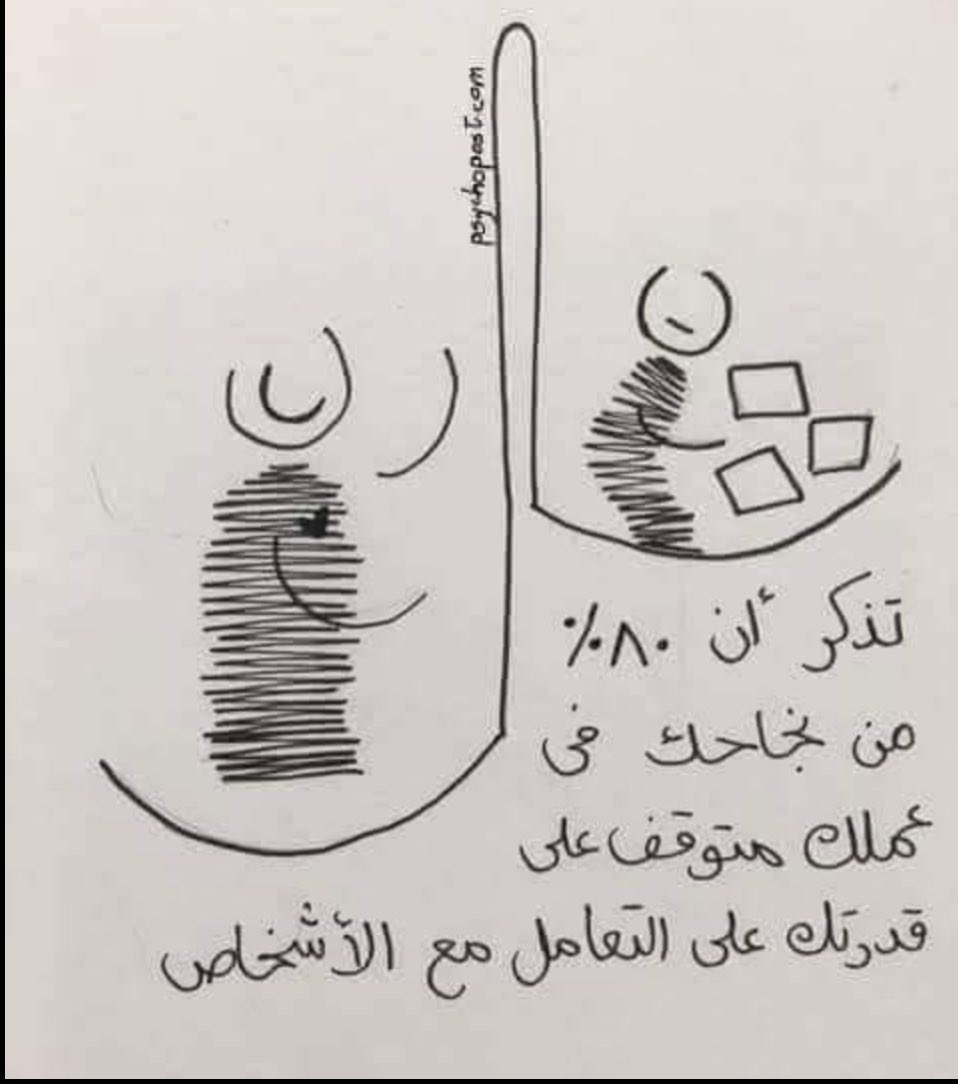 psychopost.com
تذكر أن ٨٠٪
من نجاحك فى
عملك متوقف على
قدرتك على التعامل مع الأشخاص